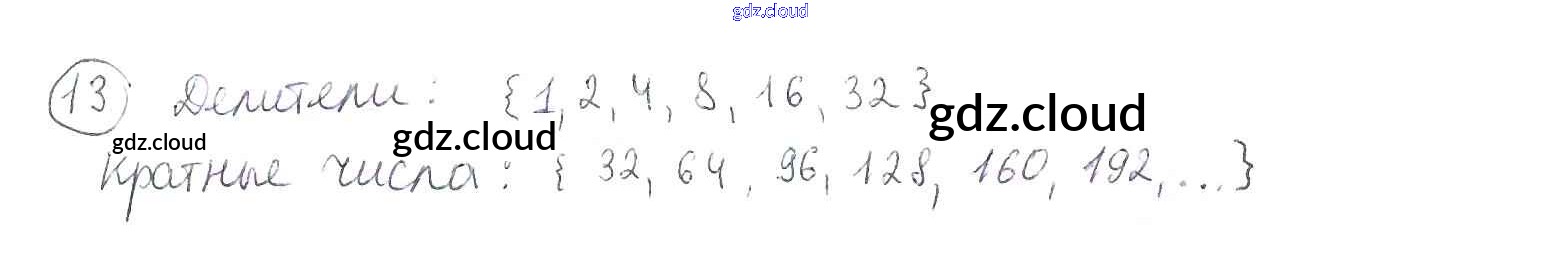 gdz.cloud
13 Делители: {1, 2, 4, 8, 16, 32}
gdz.cloud gdz.cloud gdz.cloud
Кратные числа: { 32, 64, 96, 128, 160, 192, ...}